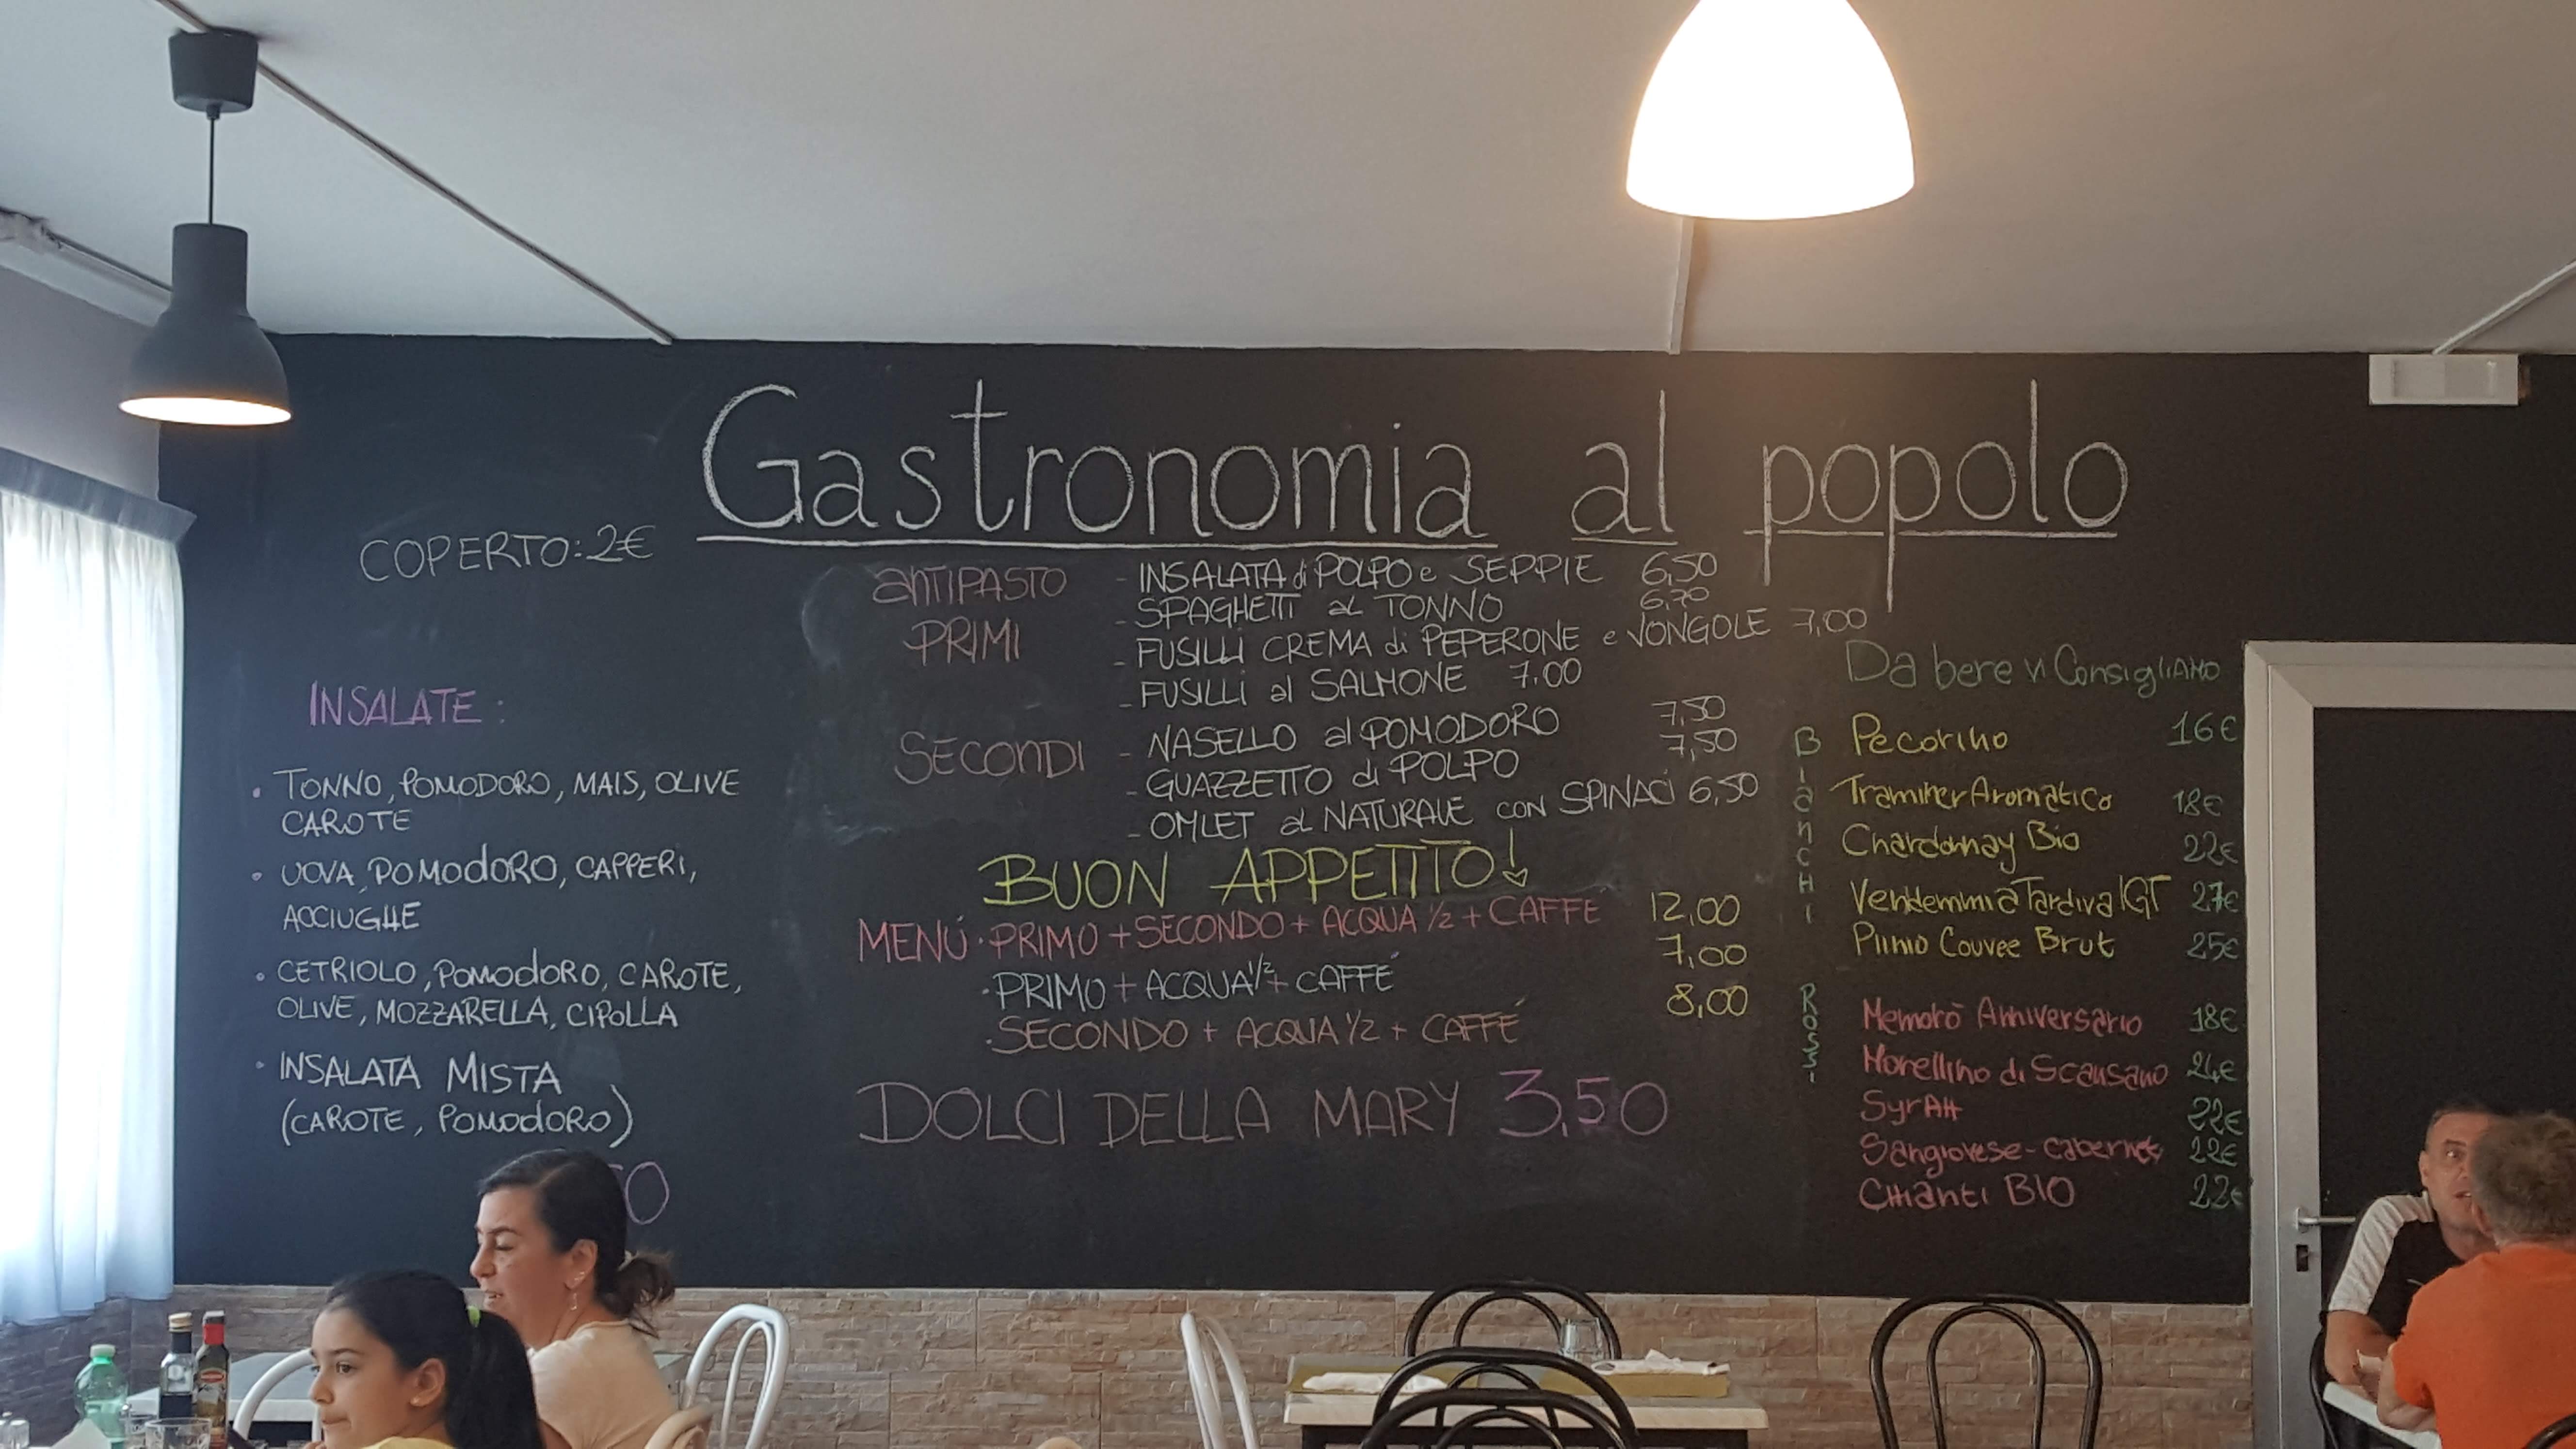 Gastronomia al popolo
COPERTO: 2€
INSALATE:
• TONNO, POMODORO, MAIS, OLIVE
CAROTE
• UOVA, POMODORO, CAPPERI,
ACCIUGHE
• CETRIOLO, POMODORO, CAROTE,
OLIVE, MOZZARELLA, CIPOLLA
• INSALATA MISTA
(CAROTE, POMODORO)
ANTIPASTO - INSALATA di POLPO e SEPPIE 6,50
PRIMI - SPAGHETTI al TONNO 6,70
- FUSILLI CREMA di PEPERONE e VONGOLE 7,00
- FUSILLI al SALMONE 7.00
SECONDI - NASELLO al POMODORO 7,50
- GUAZZETTO di POLPO 7,50
- OMLET al NATURALE CON SPINACI 6,50
BUON APPETITO!
MENÚ • PRIMO + SECONDO + ACQUA 1/2 + CAFFE 12,00
• PRIMO + ACQUA 1/2 + CAFFÉ 7,00
• SECONDO + ACQUA 1/2 + CAFFÉ 8,00
DOLCI DELLA MARY 3,50
Da bere vi Consigliamo
Bianchi
Pecorino 16€
Traminer Aromatico 18€
Chardonnay Bio 22€
Vendemmia Tardiva IGT 27€
Plinio Couvee Brut 25€
Rossi
Memorò Anniversario 18€
Morellino di Scansano 24€
Syrah 22€
Sangiovese-Cabernet 22€
Chianti BIO 22€